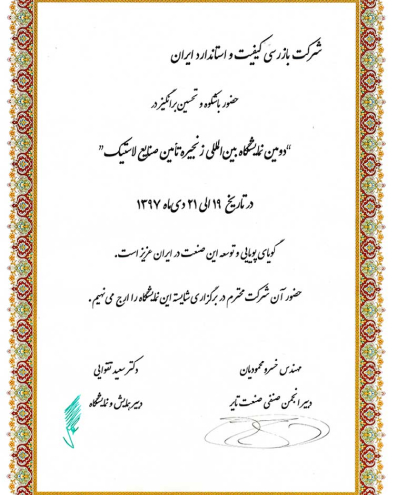 شرکت بازرسی کیفیت و استاندارد ایران
حضور باشکوه و تحسین برانگیز در
“دومین نمایشگاه بین‌المللی زنجیره تأمین صنایع لاستیک”
در تاریخ ۱۹ الی ۲۱ دی‌ماه ۱۳۹۷
گویای پویایی و توسعه این صنعت در ایران عزیز است.
حضور آن شرکت محترم در برگزاری شایسته این نمایشگاه را ارج می‌نهیم.
مهندس خسرو محمودیان
دبیر انجمن صنفی صنعت تایر
دکتر سعید تقوایی
دبیر همایش و نمایشگاه